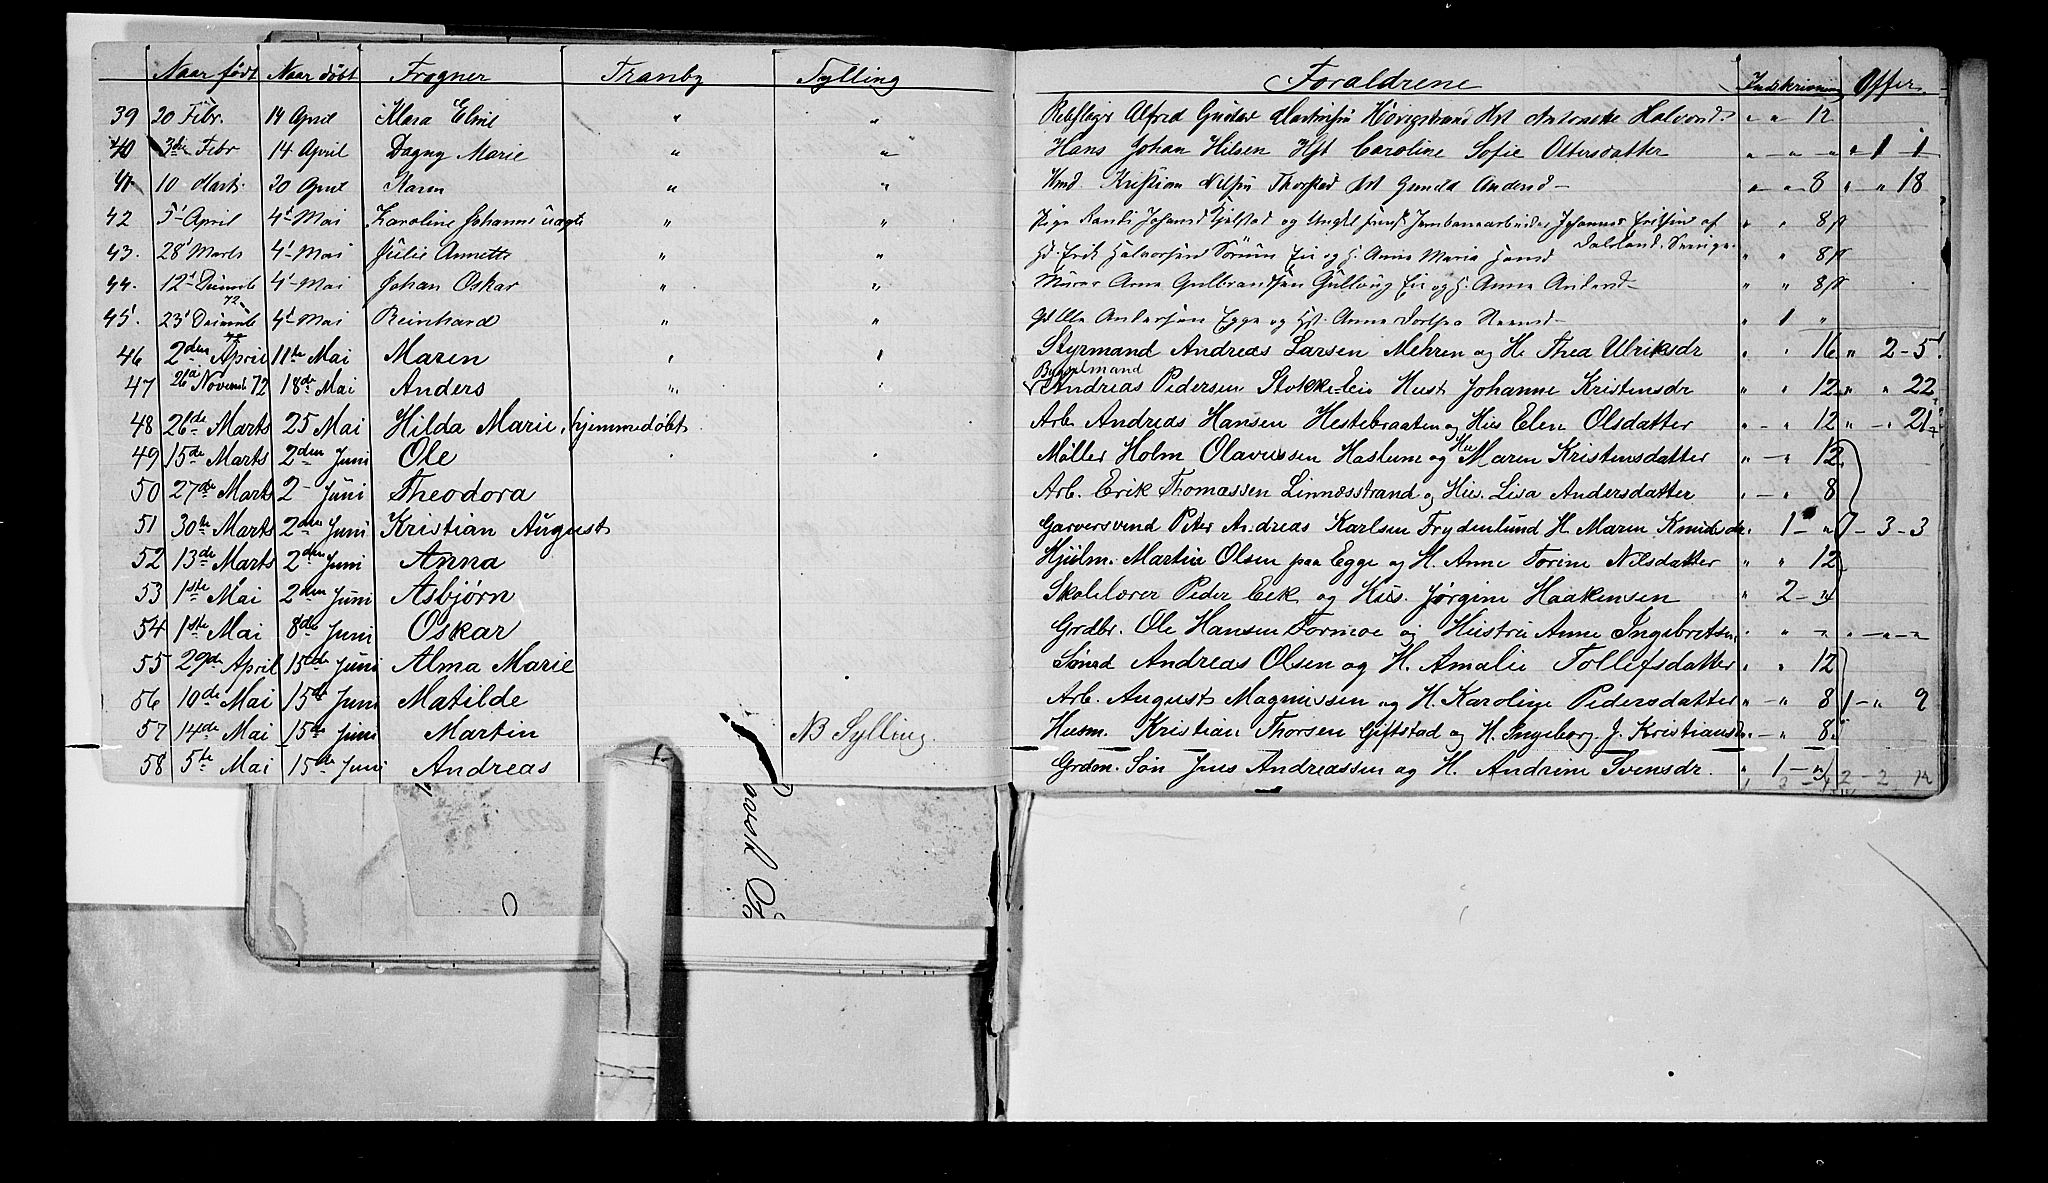 Naar født Naar døbt Frogner Tranby Sylling Forældrene Indskrivning Offer.
39 20 Febr. 14 April Klara Elmil " " Alfred Gustav Halvorsd. " " 12
40 3de Febr 14 April Dagny Marie " " Hans Johan Hilsen Hst Caroline Sofie Ottersdatter " - " - " " 1 - 1
41 10 Marts. 20 April Karen " " Hmd. Kristian Nilsen Thorstad Hst Gunild Andersd - " - " 8 " " 18
42 5' April 4d Mai Karoline Johanne uægte " " Pige Randi Johansd og Ungk Jernbanearbeider Johannes af " " 8 β
Dalsland, Sverige.
43. 28' Marts 4' Mai Julie Annette " " Halvorsen Sørum Eie og H. Anne Maria " " 8 β
44. 12t Decembr 72 4' Mai Johan Oskar " " Murer Arne Gulbrandsen Gullaug Eie og H. Anne Andersd - " " 8 β
45. 23' Decembr 72 4d Mai Reinhard " " Andersen Egge og Hst. Anne " 1 "
46 2den April 11te Mai Maren " " Styrmand Andreas Larsen Mehren og H. Thea Ulriksdr " " 16 " 2 - 5
Bygselmand
47 26de Novemb 72 18de Mai Anders " " Andreas Pedersen Stokke-Eie Hust Johanne Kristensdr " " 12 " " 22
48 26de Marts 25 Mai Hilda Marie, hjemmedøbt Arb. Andreas Hansen Hestebraaten og Hus Elen Olsdatter " - " 12 " - " 21
49 15de Marts 2den Juni Ole Møller Holm Olavussen Haslum og Hu Maren Kristensdatter " - " 12
50 27de Marts 2 - Juni Theodora Arb. Erik Thomassen Linnæsstrand og Hus. Lisa Andersdatter " - " 8
51 30te Marts 2den Juni Kristian August Garversvend Peter Andreas Karlsen Frydenlund H. Maren Knudsdr. 1 - " - 3 - 3
52 13de Marts 2den Juni Anna Hjulm. Martin Olsen paa Egge og H. Anne Torine Nilsdatter " " 12
53 1ste Mai 2den Juni Asbjørn Skolelærer Peder Eek og Hus. Jørgine Haakensen " 2 - "
54 1ste Mai 8de Juni Oskar Grdbr. Ole Hansen Tormoe og Hustru Anne Ingebretsn. " " - " - " - "
55 29de April 15de Juni Alma Marie Smed Andreas Olsen og H. Amalie Tollefsdatter " " 12
56 10de Mai 15de Juni Matilde Arb. August Magnussen og H. Karoline Pedersdatter " - " 8 1 - " 9
57 14de Mai 15de Juni Martin NB Sylling. Husm. Kristian Thorsen Giftstad og H. Ingeborg J. Kristiansd. - " 8
58 5te Mai 15de Juni Andreas Grdm. Søn Jens Andreassen og H. Andrine Svensdr. " 1 - " 2 - 2